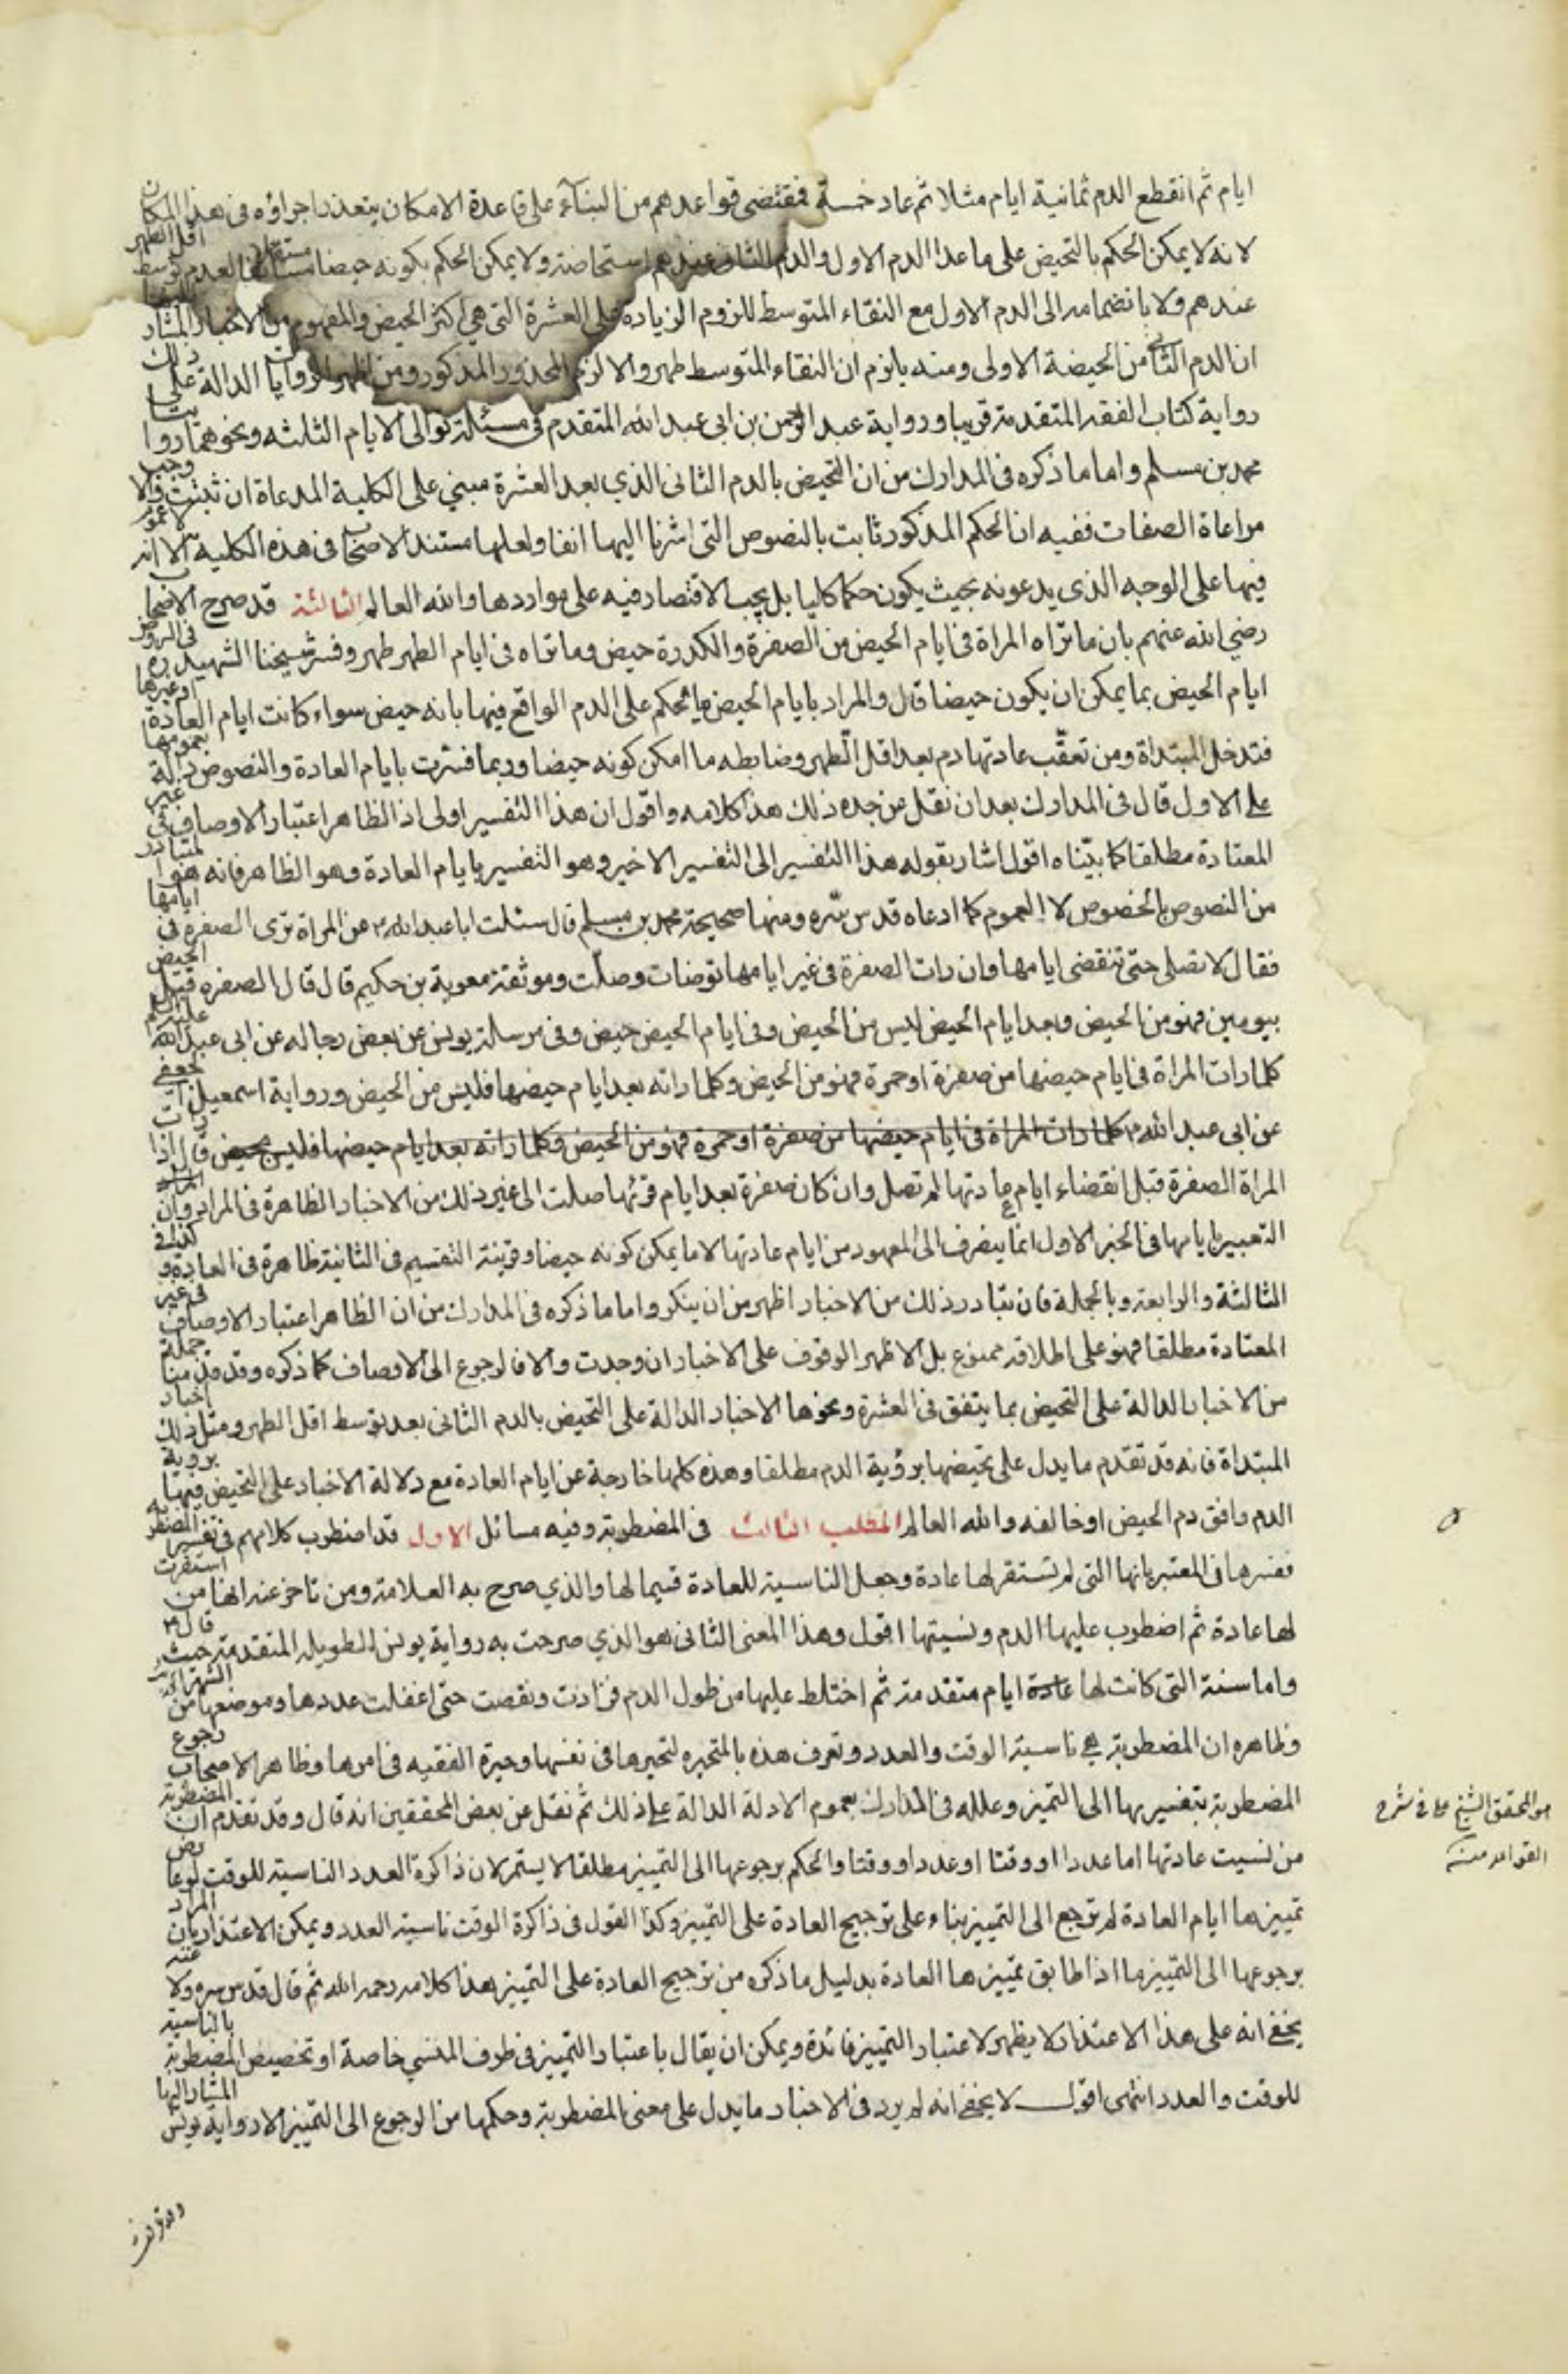 ايام ثم انقطع الدم ثمانية ايام مثلا ثم عاد خمسة فمقتضى قواعدهم من البناء على قاعدة الامكان يتعذر اجراؤه فى هذا المكان
لانه لا يمكن الحكم بالتحيض على ما عدا الدم الاول والدم الثانى عندهم استحاضة ولا يمكن الحكم بكونه حيضا مستقلا لعدم توسط اقل الطهر
عندهم ولا بانضمامه الى الدم الاول مع النقاء المتوسط للزوم الزيادة على العشرة التى هى اكثر الحيض والمفهوم من الاخبار المشار اليها
ان الدم الثانى من الحيضة الاولى ومنه يلزم ان النقاء المتوسط طهر والا لزم المحذور المذكور ومن اظهر الروايات الدالة على ذلك
رواية كتاب الفقه المتقدمة قريبا ورواية عبد الرحمن بن ابى عبد الله المتقدم فى مسئلة توالى الايام الثلثه ونحوهما روايتا
محمد بن مسلم واما ما ذكره فى المدارك من ان التحيض بالدم الثانى الذي بعد العشرة مبني على الكلية المدعاة ان ثبتت والا وجب
مراعاة الصفات ففيه ان الحكم المذكور ثابت بالنصوص التى اشرنا اليها انفا ولعلها مستند الاصحاب فى هذه الكلية الا انه لا عموم
فيها على الوجه الذى يدعونه بحيث يكون حكما كليا بل يجب الاقتصار فيه على مواردها والله العالم الثالثة قد صرح الاصحاب
رضي الله عنهم بان ما تراه المراة فى ايام الحيض من الصفرة والكدرة حيض وما تراه فى ايام الطهر طهر وفسر شيخنا الشهيد ره فى الروض
ايام الحيض بما يمكن ان يكون حيضا قال والمراد بايام الحيض ما يحكم على الدم الواقع فيها بانه حيض سواء كانت ايام العادة او غيرها
فتدخل المبتداة ومن تعقّب عادتها دم بعد اقل الطهر وضابطه ما امكن كونه حيضا وربما فسرت بايام العادة والنصوص دالة بعمومها
على الاول قال فى المدارك بعد ان نقل عن جده ذلك هذا كلامه واقول ان هذا التفسير اولى اذ الظاهر اعتبار الاوصاف فى غير
المعتادة مطلقا كما بيّناه اقول اشار بقوله هذا التفسير الى التفسير الاخير وهو التفسير بايام العادة وهو الظاهر فانه هو المتبادر
من النصوص بالخصوص لا العموم كما ادعاه قدس سره ومنها صحيحة محمد بن مسلم قال سئلت ابا عبد الله ع عن المراة ترى الصفرة فى ايامها
فقال لا تصلى حتى تنقضى ايامها وان رات الصفرة فى غير ايامها توضات وصلّت وموثقة معوية بن حكيم قال قال الصفره قبل الحيض
بيومين فهو من الحيض وبعد ايام الحيض ليس من الحيض وفى ايام الحيض حيض وفى مرسلة يونس عن بعض رجاله عن ابى عبد الله عليه السلم
كلما رات المراة فى ايام حيضها من صفرة او حمرة فهو من الحيض وكلما راته بعد ايام حيضها فليس من الحيض ورواية اسمعيل الجعفى
عن ابى عبد الله ع كلما رات المراة فى ايام حيضها من صفرة او حمرة فهو من الحيض وكلما راته بعد ايام حيضها فليس بحيض قال اذا رات
المراة الصفرة قبل انقضاء ايام عادتها لم تصل وان كان صفرة بعد ايام قرئها صلت الى غير ذلك من الاخبار الظاهرة فى المراد وان
التعبير بايامها فى الخبر الاول انما ينصرف الى المعهود من ايام عادتها لا ما يمكن كونه حيضا وقرينة التقسيم فى الثانية ظاهرة فى العادة وكذا فى
الثالثة والرابعة وبالجملة فان تبادر ذلك من الاخبار اظهر من ان ينكر واما ما ذكره فى المدارك من ان الظاهر اعتبار الاوصاف فى غير
المعتادة مطلقا فهو على اطلاقه ممنوع بل الاظهر الوقوف على الاخبار ان وجدت والا فالرجوع الى الاوصاف كما ذكره وقد قدمنا جملة
من الاخبار الدالة على التحيض بما يتفق فى العشرة ونحوها الاخبار الدالة على التحيض بالدم الثانى بعد توسط اقل الطهر ومثل ذلك اخبار
المبتداة فانه قد تقدم ما يدل على تحيضها برؤية الدم مطلقا وهذه كلها خارجة عن ايام العادة مع دلالة الاخبار على التحيض فيها بروية
الدم وافق دم الحيض او خالفه والله العالم المطلب الثالث فى المضطربة وفيه مسائل الاول قد اضطرب كلامهم فى تفسير المضطربه
ففسرها فى المعتبر بانها التى لم تستقر لها عادة وجعل الناسية للعادة قسيما لها والذي صرح به العلامة ومن تاخر عنه انها من استقرت
لها عادة ثم اضطرب عليها الدم ونسيتها اقول وهذا المعنى الثانى هو الذي صرحت به رواية يونس الطويله المتقدمة حيث قال ع
واما سنة التى كانت لها عادة ايام متقدمة ثم اختلط عليها من طول الدم فزادت ونقصت حتى اغفلت عددها وموضعها من الشهر
وظاهره ان المضطربة هى ناسية الوقت والعدد وتعرف هذه بالمتحيره لتحيرها فى نفسها وحيرة الفقيه فى امرها وظاهر الاصحاب رجوع
المضطربة بتفسيريها الى التميز وعلله فى المدارك بعموم الادلة الدالة على ذلك ثم نقل عن بعض المحققين انه قال وقد تقدم ان المضطربة
من نسيت عادتها اما عددا او وقتا او عددا ووقتا والحكم برجوعها الى التمييز مطلقا لا يستمر لان ذاكرة العدد الناسية للوقت لو عارض
تمييزها ايام العادة لم ترجع الى التمييز بناء على ترجيح العادة على التمييز وكذا القول فى ذاكرة الوقت ناسية العدد ويمكن الاعتذار بان المراد
برجوعها الى التمييز ما اذا طابق تمييزها العادة بدليل ما ذكره من ترجيح العادة على التمييز هذا كلامه رحمه الله ثم قال قدس سره ولا
يخفى انه على هذا الاعتذار لا يظهر لاعتبار التمييز فائدة ويمكن ان يقال باعتبار التمييز فى طرف المنسي خاصة او تخصيص المضطربة بالناسية
للوقت والعدد انتهى اقول لا يخفى انه لم يرد فى الاخبار ما يدل على معنى المضطربة وحكمها من الرجوع الى التمييز الا رواية يونس المشار اليها
هو المحقق الشيخ على فى شرح
القواعد منه